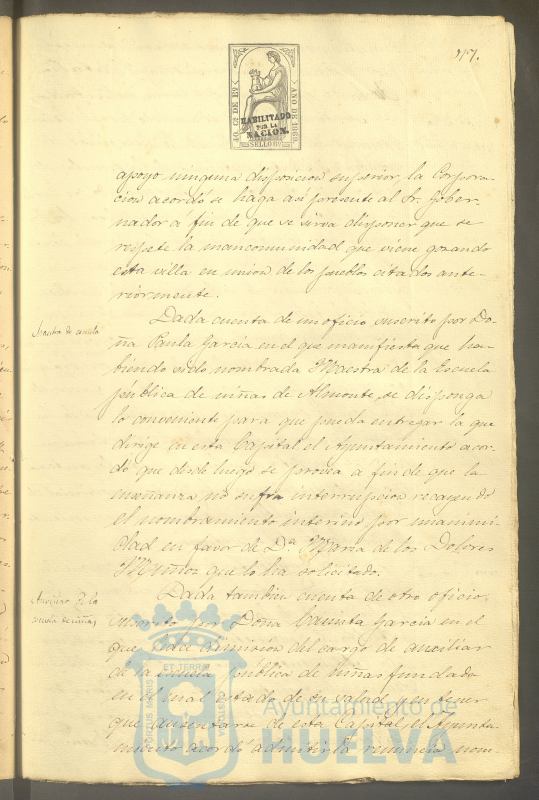 117.
10. Cs. DE Eo.
AÑO DE 1869
HABILITADO
POR LA
NACION.
SELLO 8º
apoyo ninguna disposicion superior, la Corpora-
cion acordó se haga asi presente al Sr. Gober-
nador á fin de que se sirva disponer que se
respete la mancomunidad que viene gozando
esta villa en union de los pueblos citados ante-
riormente.
Maestra de escuela
Dada cuenta de un oficio suscrito por Do-
ña Paula Garcia en el que manifiesta que ha-
biendo sido nombrada Maestra de la Escuela
pública de niñas de Almonte, se disponga
lo conveniente para que pueda entregar la que
dirige en esta Capital el Ayuntamiento acor-
dó que desde luego se provea a fin de que la
enseñanza no sufra interrupcion recayendo
el nombramiento interino por unanimi-
dad en favor de Dª Maria de los Dolores
Muñoz que lo ha solicitado.
Auxiliar de la
escuela de niñas
Dada tambien cuenta de otro oficio
suscrito por Doña Garcia en el
que pide dimision del cargo de auxiliar
de la escuela pública de niñas fundada
en el mal estado de su salud y en tener
que ausentarse de esta Capital el Ayunta-
miento acordó admitirla renuncia nom-
PORTUS MARIS
ET TERRÆ
CUSTODIA
Ayuntamiento de
HUELVA